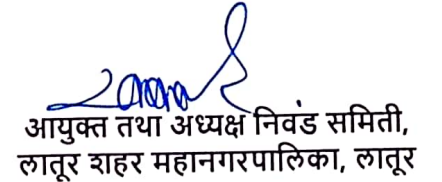 आयुक्त तथा अध्यक्ष निवंड समिती,
लातूर शहर महानगरपालिका, लातूर